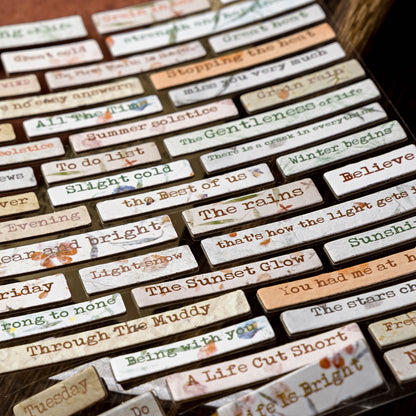 strength and
Great cold
Great heat
Stopping the heat
miss you very much
and easy answers
All The Time
Grain rain
Summer solstice
The Gentleness of life
solstice
There is a crack in everything
To do list
Winter begins
Slight cold
the Best of us
Believe
Evening
The rains
that's how the light gets
and bright
Light snow
Sunshin
Friday
The Sunset Glow
You had me at h
rong to none
The stars
Through The Muddy
Being with you
A Life Cut Short
Life Is Bright
Tuesday
Do